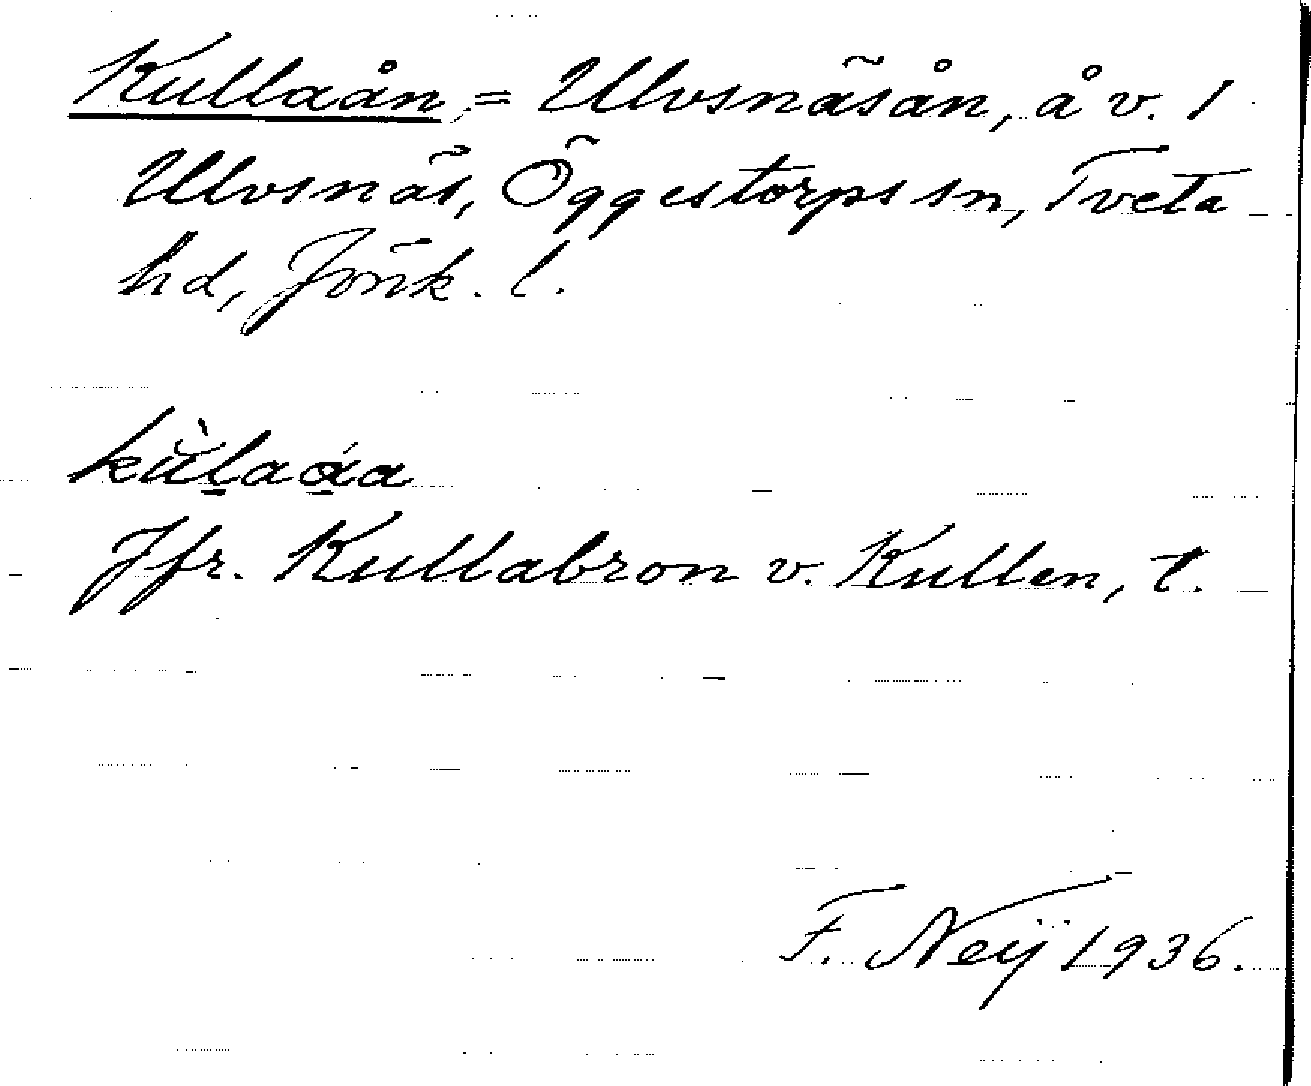 Kullaån, = Ulvsnäsån, å v. 1
Ulvsnäs, Öggestorps sn, Tveta
hd, Jönk. l.
Jfr. Kullabron v. Kullen, t.
F. Neij 1936.